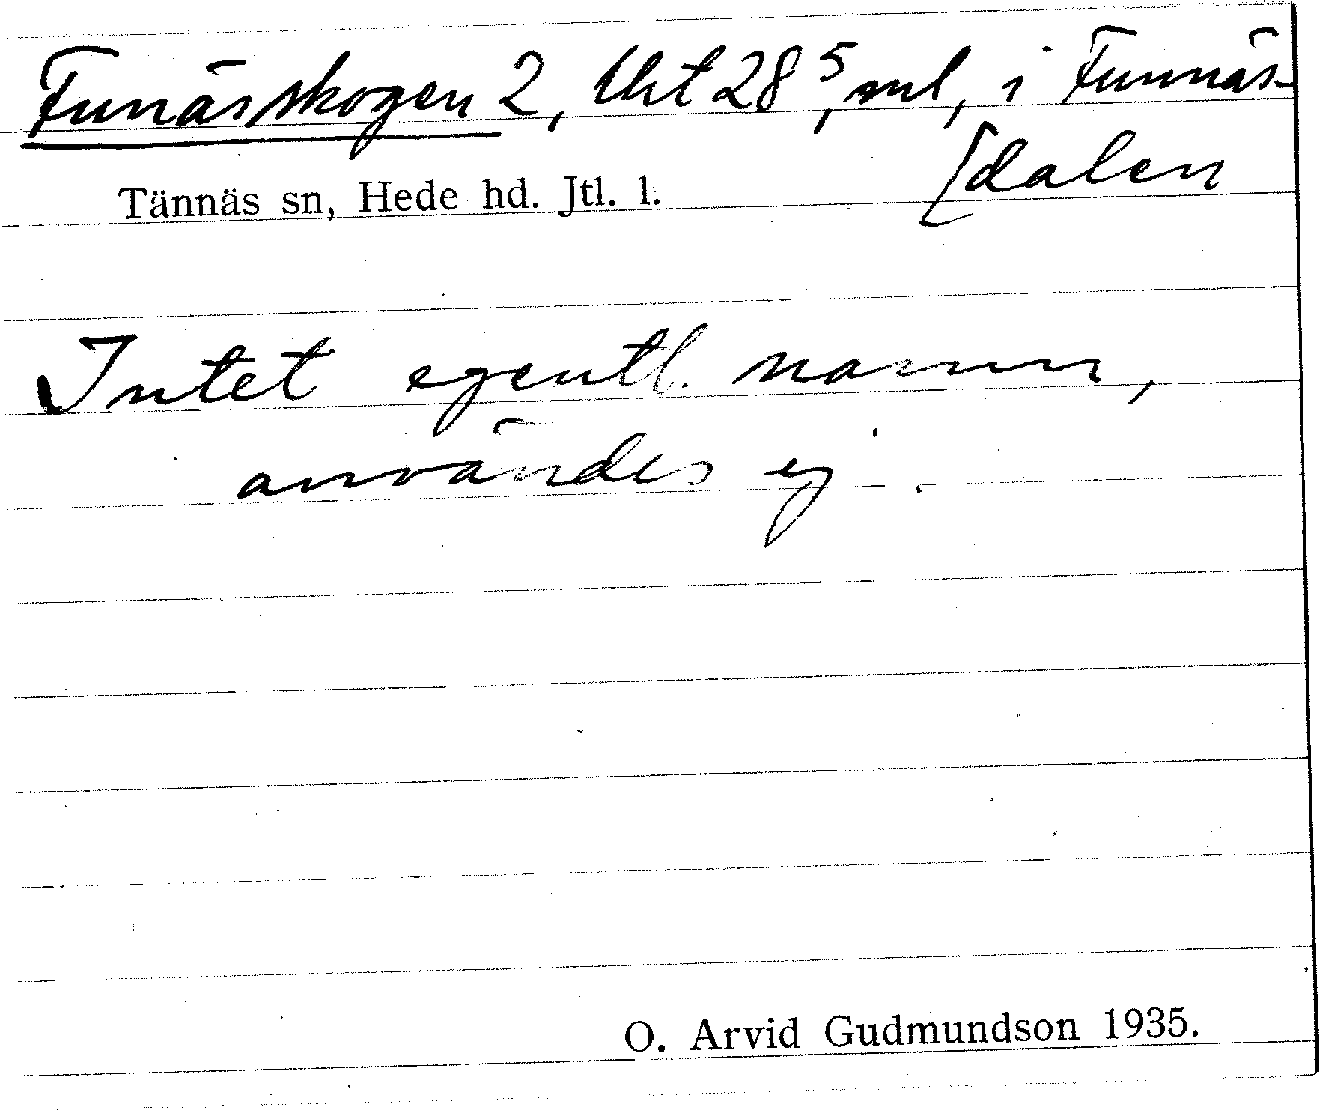 Funässkogen 2, Utkt 28⁵, ml, i Funnäs-
[dalen
Tännäs sn, Hede hd. Jtl. l.
Intet egentl. namn,
användes ej.
O. Arvid Gudmundson 1935.